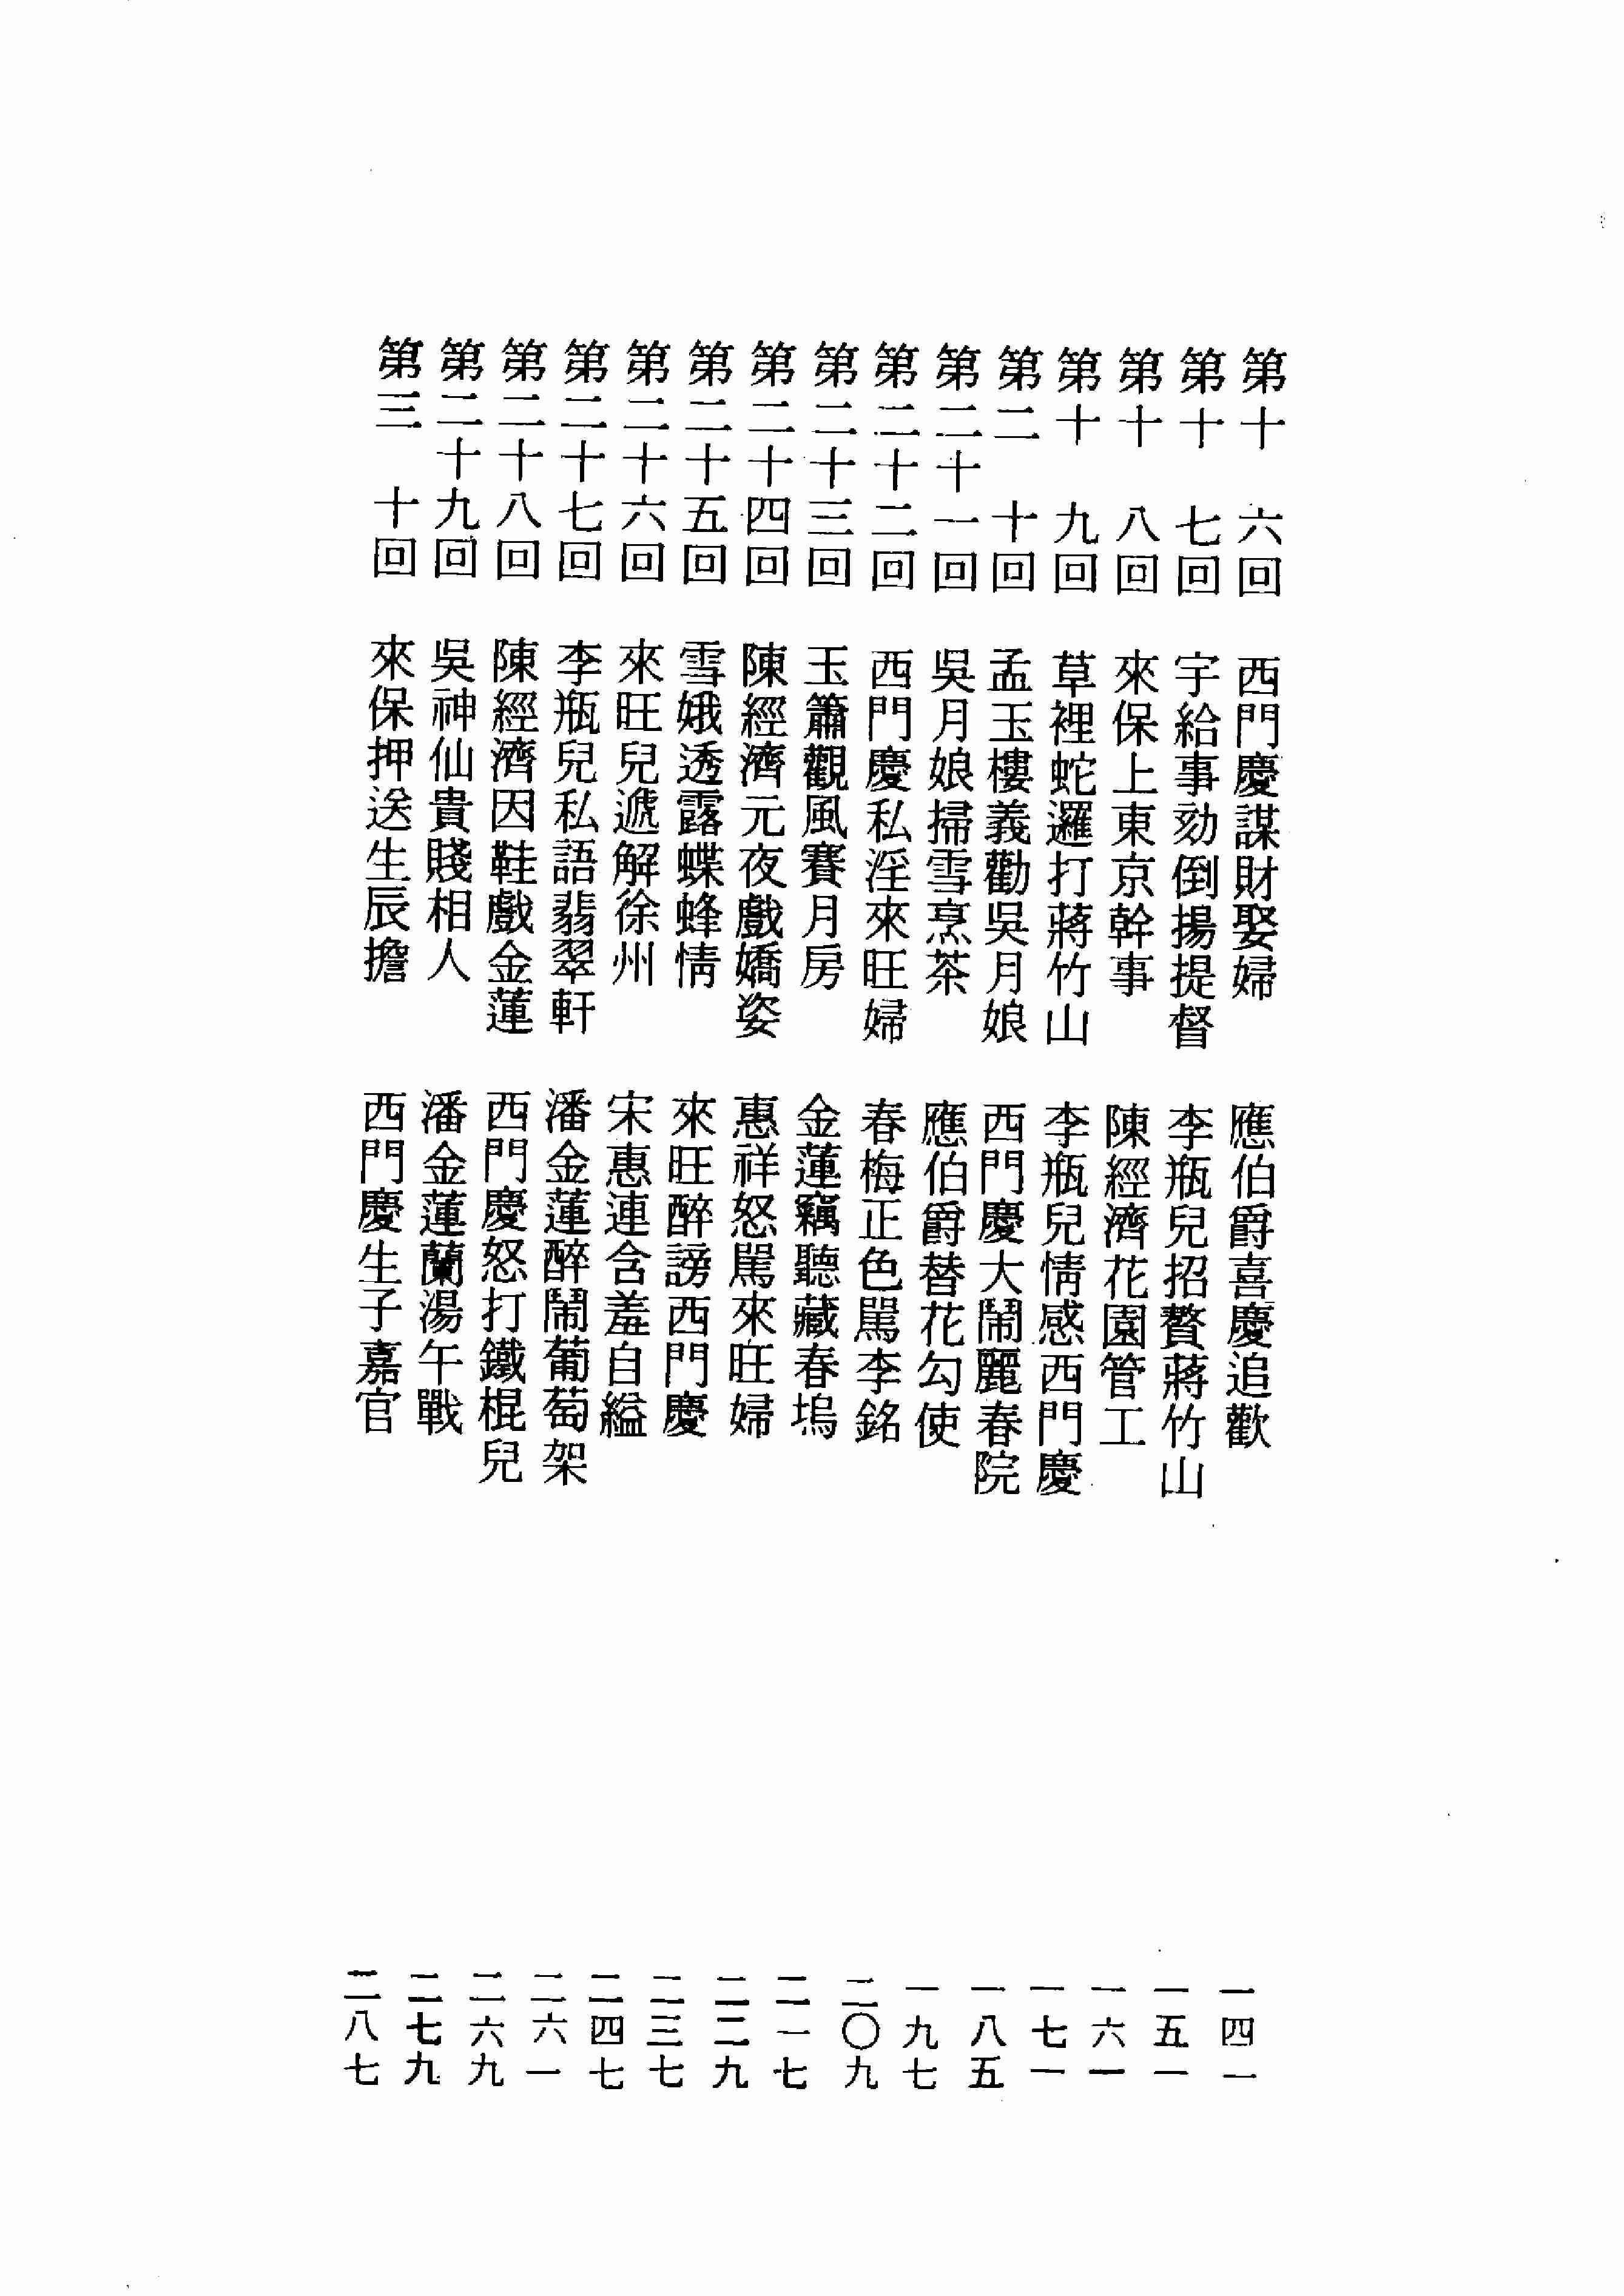 第十六回 西門慶謀財娶婦 應伯爵喜慶追歡 一四一
第十七回 宇給事劾倒揚提督 李瓶兒招贅蔣竹山 一五一
第十八回 來保上東京幹事 陳經濟花園管工 一六一
第十九回 草裡蛇邏打蔣竹山 李瓶兒情感西門慶 一七一
第二十回 孟玉樓義勸吳月娘 西門慶大鬧麗春院 一八五
第二十一回 吳月娘掃雪烹茶 應伯爵替花勾使 一九七
第二十二回 西門慶私淫來旺婦 春梅正色駡李銘 二〇九
第二十三回 玉簫觀風賽月房 金蓮竊聽藏春塢 二一七
第二十四回 陳經濟元夜戲嬌姿 惠祥怒駡來旺婦 二二九
第二十五回 雪娥透露蝶蜂情 來旺醉謗西門慶 二三七
第二十六回 來旺兒遞解徐州 宋惠連含羞自縊 二四七
第二十七回 李瓶兒私語翡翠軒 潘金蓮醉鬧葡萄架 二六一
第二十八回 陳經濟因鞋戲金蓮 西門慶怒打鐵棍兒 二六九
第二十九回 吳神仙貴賤相人 潘金蓮蘭湯午戰 二七九
第三十回 來保押送生辰擔 西門慶生子嘉官 二八七